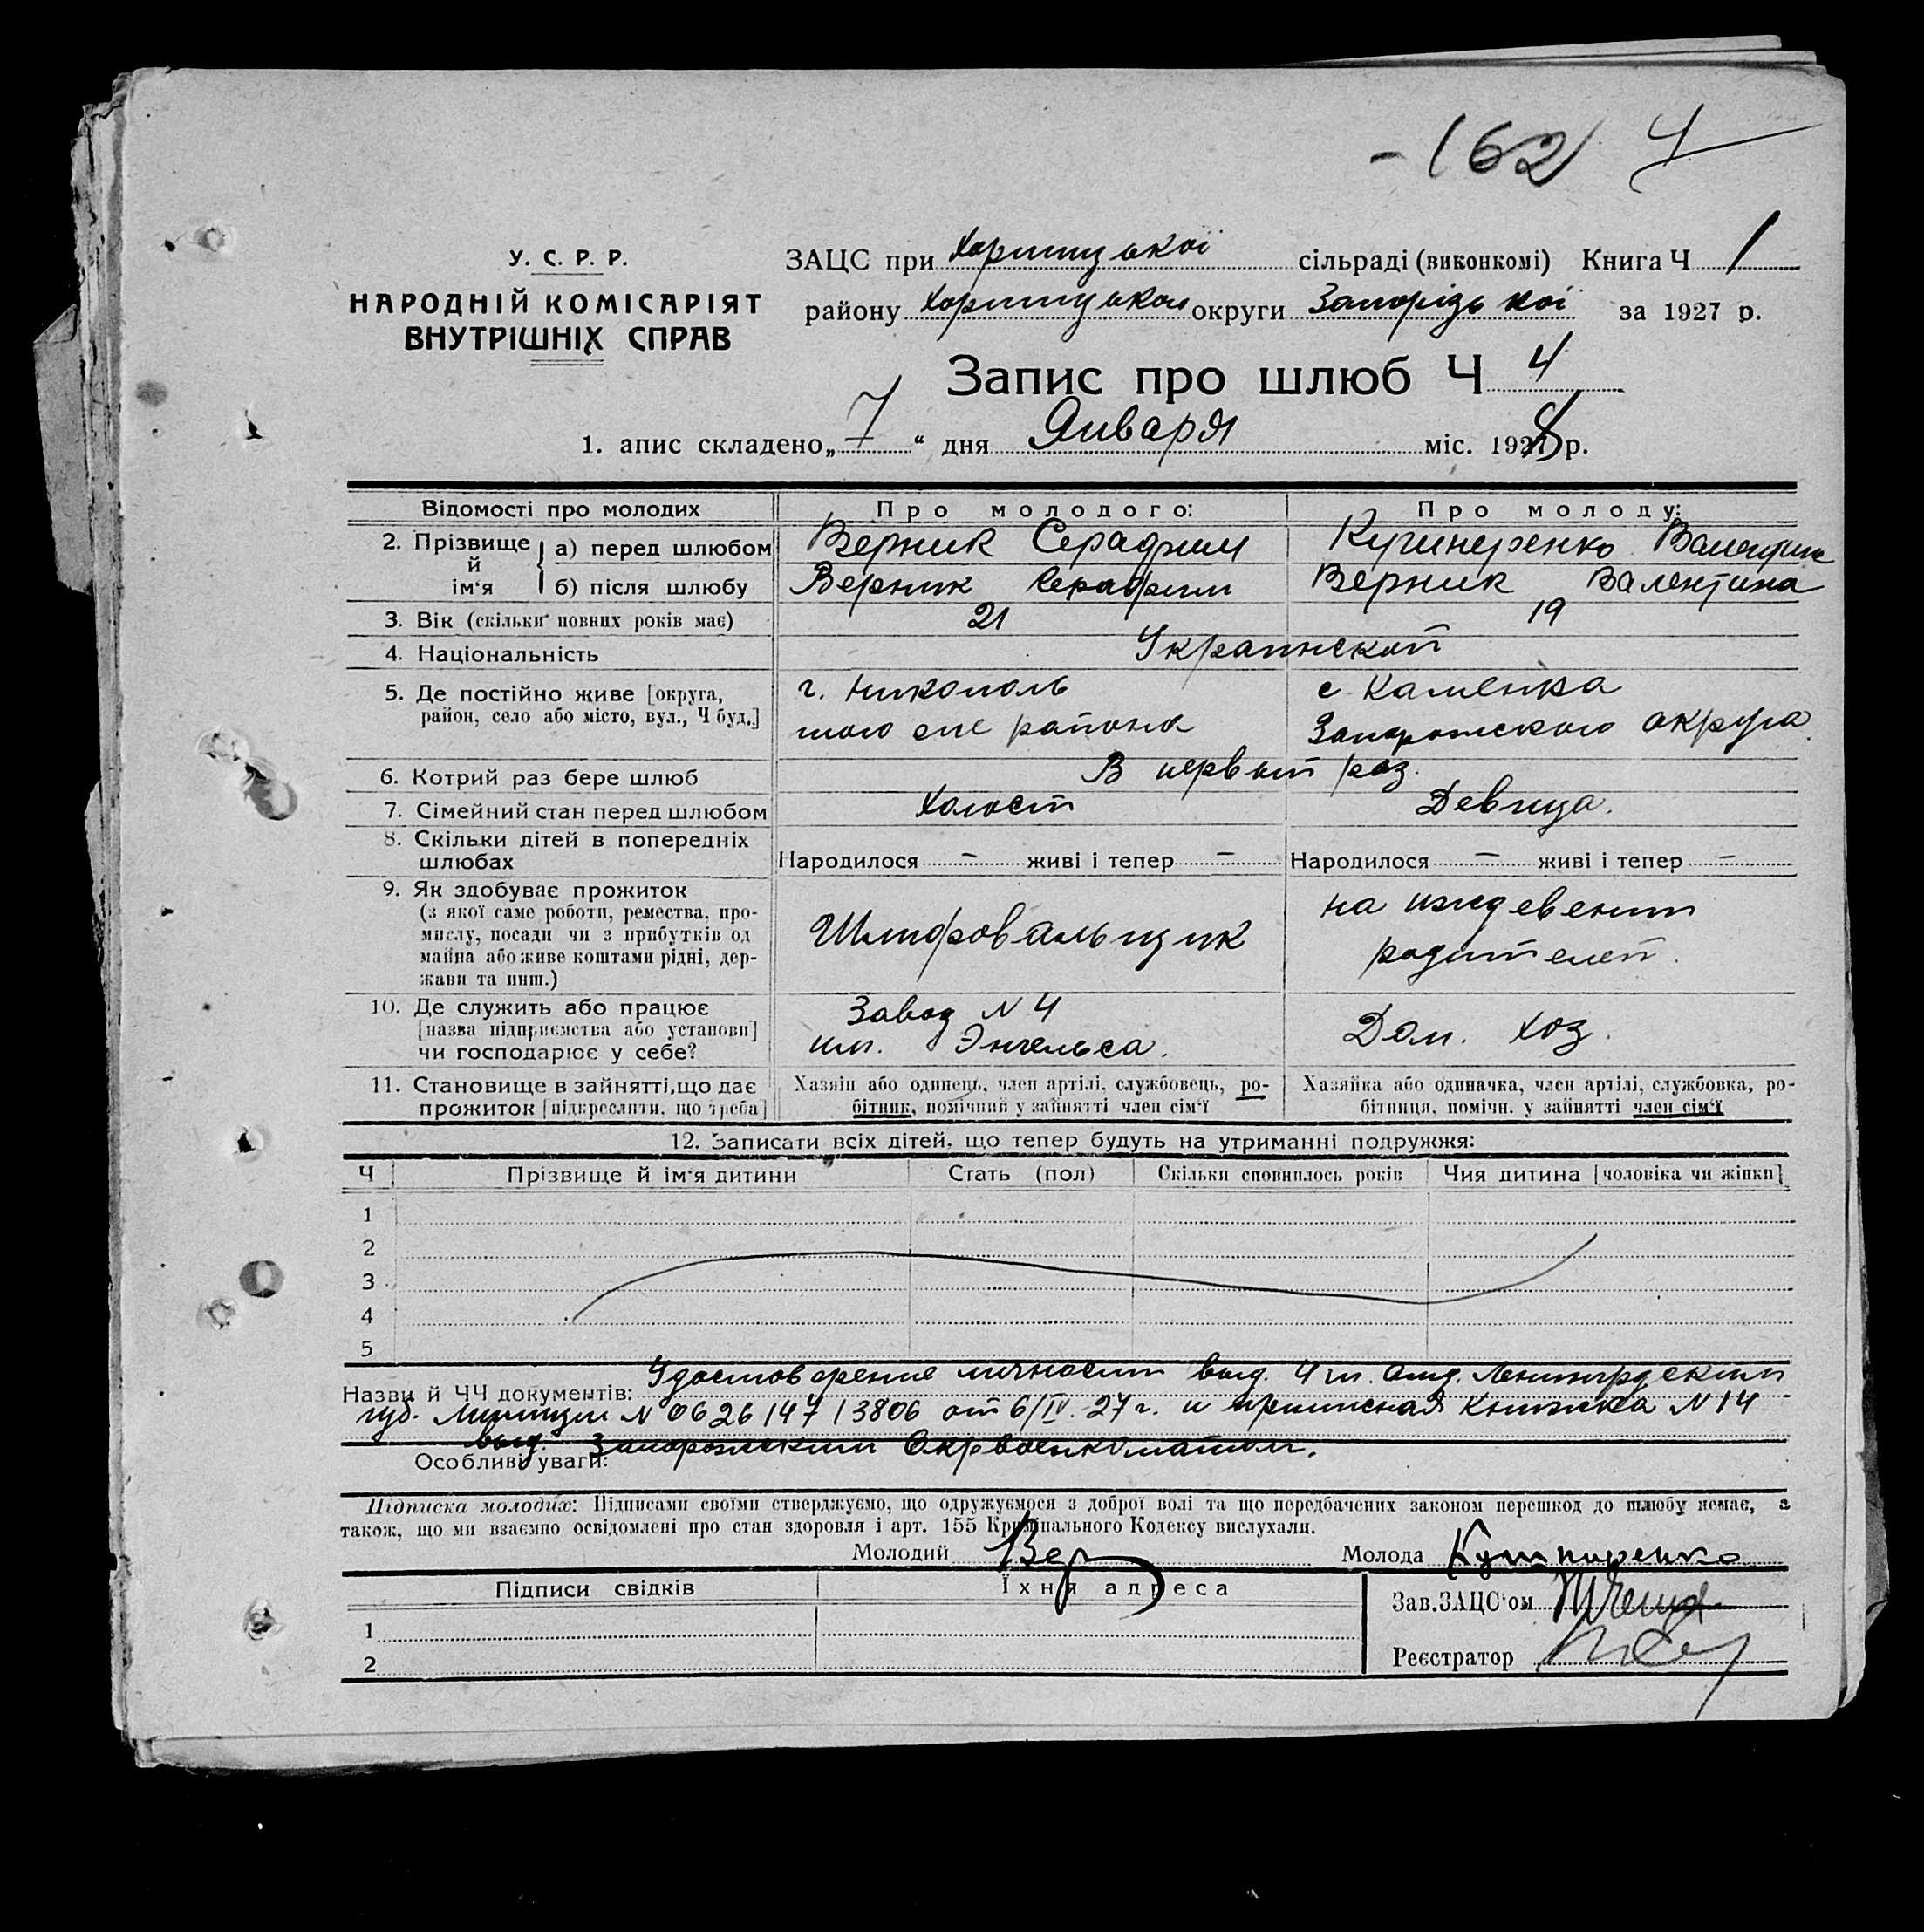 -162 4
У. С. Р. Р.
НАРОДНІЙ КОМІСАРІЯТ
ВНУТРІШНІХ СПРАВ
ЗАЦС при Хортицької сільраді (виконкомі) Книга Ч 1
району Хортицької округи Запорізької за 1927 р.
Запис про шлюб Ч 4
1. апис складено „7“ дня Января міс. 1928 р.
Відомості про молодих
Про молодого:
Про молоду:
2. Прізвище й ім'я
а) перед шлюбом
Верник Серафим
Валентина
б) після шлюбу
Верник Серафим
Верник Валентина
3. Вік (скільки повних років має)
21
19
4. Національність
Украинской
5. Де постійно живе [округа,
район, село або місто, вул., Ч буд.]
г. Никополь
того же района
с Каменка
Запорожского округа.
6. Котрий раз бере шлюб
В первый раз.
7. Сімейний стан перед шлюбом
Холост
Девица.
8. Скільки дітей в попередніх
шлюбах
Народилося – живі і тепер –
Народилося – живі і тепер –
9. Як здобуває прожиток
(з якої саме роботи, ремества, про-
мислу, посади чи з прибутків од
майна або живе коштами рідні, дер-
жави та инш.)
Шлифовальщик
на иждевении
родителей.
10. Де служить або працює
[назва підприємства або установи]
чи господарює у себе?
Завод N 4
им. Энгельса.
Дом. хоз.
11. Становище в зайнятті, що дає
прожиток [підкреслити, що треба]
Хазяїн або одинець, член артілі, службовець, ро-
бітник, помічний у зайнятті член сім'ї
Хазяйка або одиначка, член артілі, службовка, ро-
бітниця, помічн. у зайнятті член сім'ї
12. Записати всіх дітей, що тепер будуть на утриманні подружжя:
Ч
Прізвище й ім'я дитини
Стать (пол)
Скільки сповнилось років
Чия дитина [чоловіка чи жінки]
1
2
3
4
5
Удостоверение личности выд. 4 м. отд. Ленинградским
Назви й ЧЧ документів:
губ. Милиции N 0626/47/3806 от 6/IV. 27 г. и приписная Книжка N 14
выд. Запорожским Окрвоенкоматом.
Особливі уваги:
Підписка молодих: Підписами своїми стверджуємо, що одружуємося з доброї волі та що передбачених законом перешкод до шлюбу немає, а
також, що ми взаємно освідомлені про стан здоровля і арт. 155 Кримінального Кодексу вислухали.
Молодий Вер
Молода
Підписи свідків
Їхня адреса
1
2
Зав. ЗАЦС'ом
Реєстратор